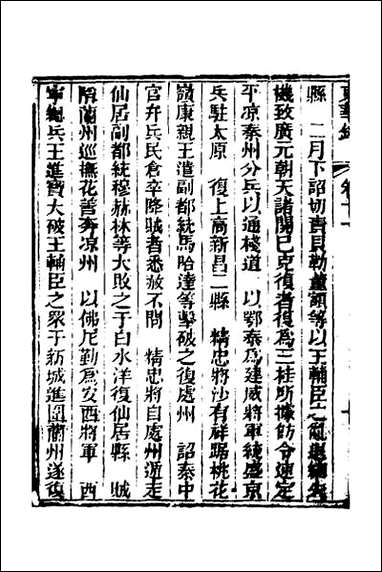 東華錄 卷十一
縣 二月下詔切責貝勒董額等以王輔臣之亂退
機致廣元朝天諸關已克復者復爲三桂所據飭令速定
平凉秦州分兵以通棧道 以鄂泰爲建威將軍統盛京
兵駐太原 復上高新昌二縣 精忠將沙有祥踞桃花
嶺康親王遣副都統馬哈達等擊破之復處州 詔秦中
官弁兵民倉卒降賊者悉赦不問 精忠將自處州遁走
仙居副都統穆赫林等大敗之于白水洋復仙居縣 賊
陷蘭州巡撫花善奔凉州 以佛尼勒爲安西將軍 西
寧總兵王進寶大破王輔臣之眾于新城進圍蘭州遂復